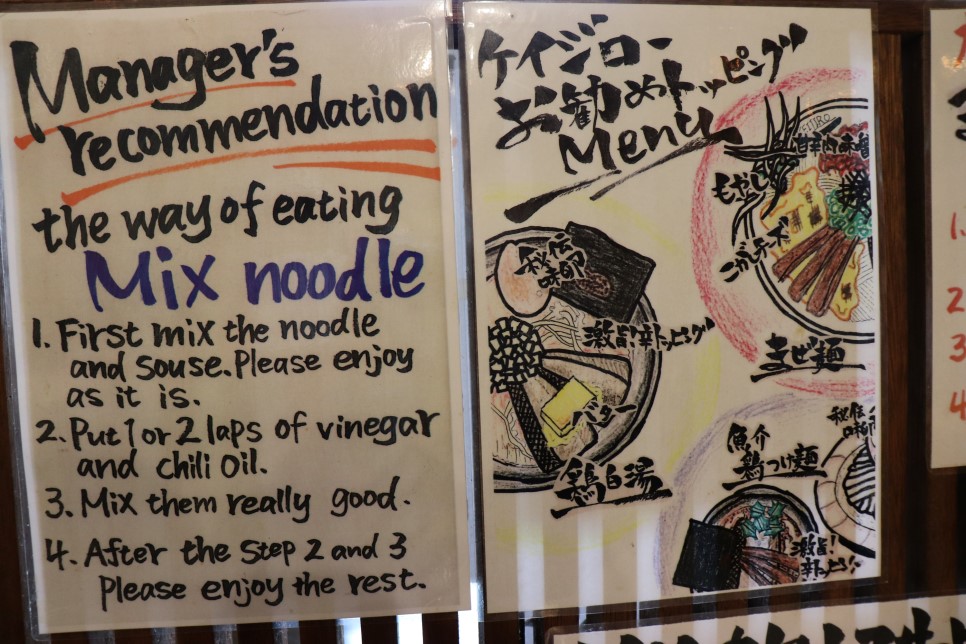 Manager's
recommendation
the way of eating
Mix noodle
1. First mix the noodle
and souse. Please enjoy
as it is.
2. Put 1 or 2 laps of vinegar
and chili oil.
3. Mix them really good.
4. After the step 2 and 3
Please enjoy the rest.
ケイジロー
お勧めトッピング
Menu
甘辛肉味噌
もやし
こがしチーズ
まぜ麺
秘伝
味卵
激旨!辛トッピング
バター
鶏白湯
魚介
鶏つけ麺
秘伝
激旨!
辛トッピ
1.
2
3
4